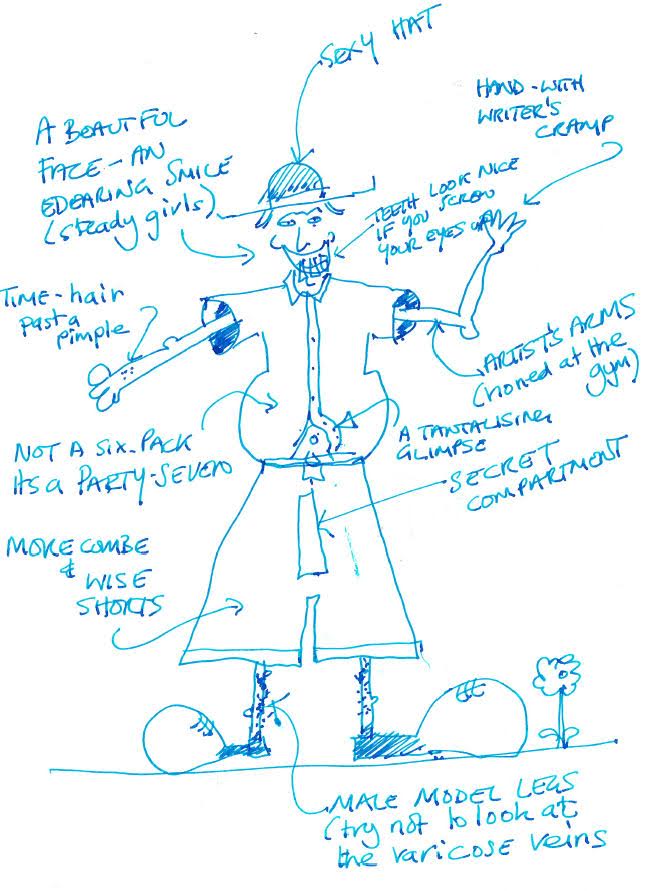 SEXY HAT
HAND-WITH
WRITER'S
CRAMP
A BEAUTIFUL
FACE-AN
EDEARING SMILE
(steady girls)
TEETH LOOK NICE
IF YOU SCREW
YOUR EYES UP
TIME-hair
past a
pimple
ARTIST'S ARMS
(honed at the
gym)
NOT A SIX-PACK
Its a PARTY-SEVEN
A TANTALISING
GLIMPSE
SECRET
COMPARTMENT
MORECOMBE
& WISE
SHORTS
MALE MODEL LEGS
(try not to look at
the varicose veins